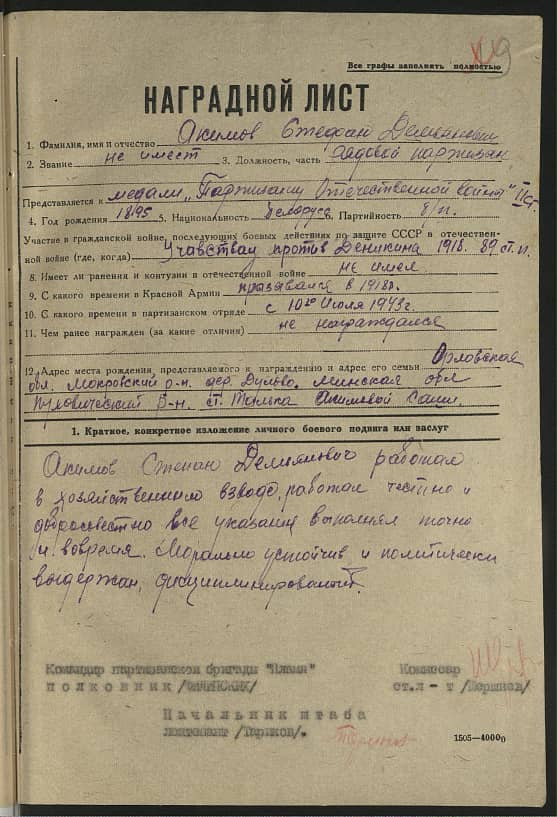 19
Все графы заполнять полностью
НАГРАДНОЙ ЛИСТ
1. Фамилия, имя и отчество Акимов Стефан Демьянович
2. Звание не имеет 3. Должность, часть рядовой партизан
Представляется к медали „Партизану Отечественной войны" II ст.
4. Год рождения 1895 5. Национальность белорус 6. Партийность б/п.
Участие в гражданской войне, последующих боевых действиях по защите СССР в отечествен-
ной войне (где, когда) Учавствал против Деникина 1918. 89 ст. п.
8. Имеет ли ранения и контузии в отечественной войне не имел
9. С какого времени в Красной Армии призывался в 1918г.
10. С какого времени в партизанском отряде с 10го Июля 1943г.
11. Чем ранее награжден (за какие отличия) не награждался
12. Адрес места рождения, представляемого к награждению и адрес его семьи Орловская
обл. Мокровский р-н. дер. Дулово. Минская обл
Пуховический р-н. ст. Талька Акимовой
1. Краткое, конкретное изложение личного боевого подвига или заслуг
Акимов Степан Демьянович работал
в хозяйственном взводе, работал честно и
добросовестно все указания выполнял точно
и вовремя. Морально устойчив и политически
выдержан, дисциплинирован.
Командир партизанской бригады "Пламя"
полковник /ФИЛИПСКИХ/
Комиссар
ст.л-т /Першнев/
Начальник штаба
лейтенант /Тариков/.
1505—4000